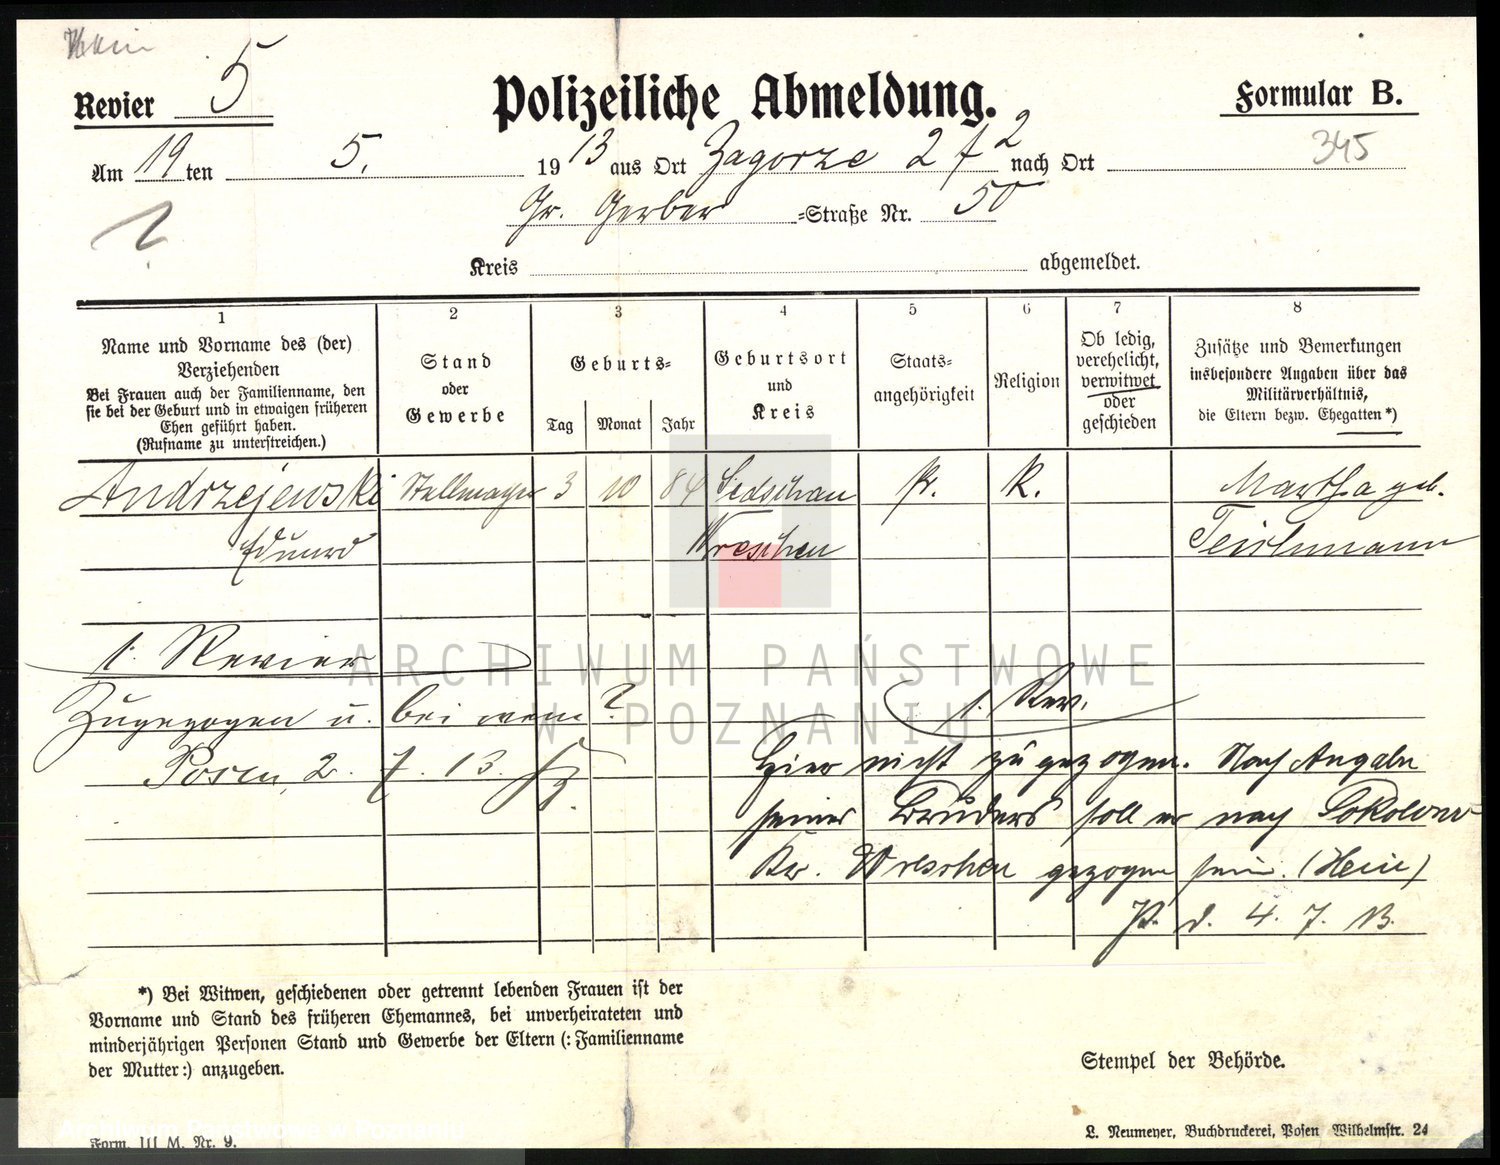 Revier 5
Polizeiliche Abmeldung.
Formular B.
345
Am 19 ten 5. 1913 aus Ort Zagorze 2 f 2 nach Ort
Gr. Gerber -Straße Nr. 50
Kreis abgemeldet.
1 2 3 4 5 6 7 8
Name und Vorname des (der)
Verziehenden
Bei Frauen auch der Familienname, den
sie bei der Geburt und in etwaigen früheren
Ehen geführt haben.
(Rufname zu unterstreichen.)
Stand
oder
Gewerbe
Geburts-
Tag Monat Jahr
Geburtsort
und
Kreis
Staats-
angehörigkeit
Religion
Ob ledig,
verehelicht,
verwitwet
oder
geschieden
Zusätze und Bemerkungen
insbesondere Angaben über das
Militärverhältnis,
die Eltern bezw. Ehegatten*)
Andrzejewski Stellmacher 3 10 84 Sedschau Pr. K. Martha geb.
Eduard Wreschen Teichmann
1. Revier
Zugezogen u. bei wem?
Posen, 2. 7. 13.
1. Rev.
Hier nicht zugezogen. Nach Angabe
seines Bruders soll er nach Sokolowo
Kr. Wreschen gezogen sein. (Hein)
P. d. 4. 7. 13.
ARCHIWUM PAŃSTWOWE
W POZNANIU
*) Bei Witwen, geschiedenen oder getrennt lebenden Frauen ist der
Vorname und Stand des früheren Ehemannes, bei unverheirateten und
minderjährigen Personen Stand und Gewerbe der Eltern (: Familienname
der Mutter:) anzugeben.
Stempel der Behörde.
Form. III M. Nr. 9.
L. Neumeyer, Buchdruckerei, Posen Wilhelmstr. 24
Archiwum Państwowe w Poznaniu